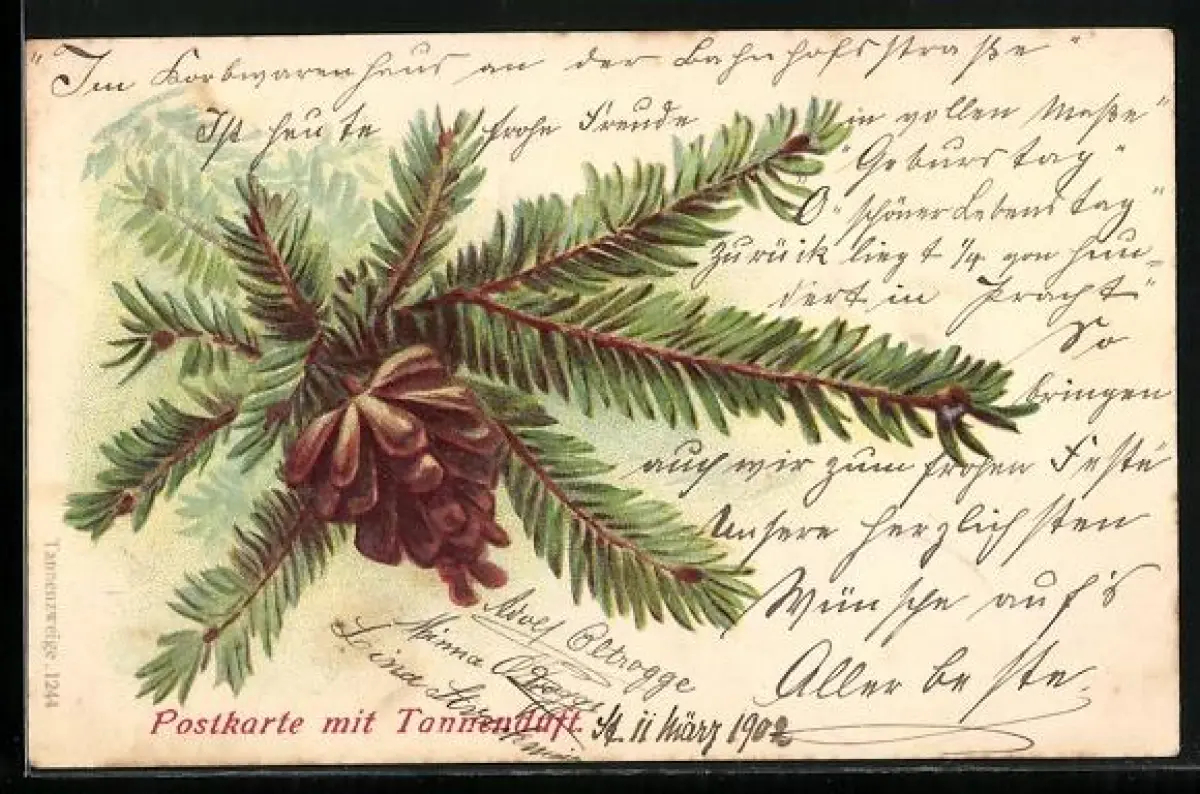 "Im Korbwarenhaus an der Bahnhofsstraße"
Ist heute frohe Freude in vollen Maße"
"Geburstag"
O" schöner Lebenstag"
Zurück liegt 1/4 von hun-
dert in Pracht"
So
bringen
auch wir zum frohen Feste
Unsere herzlichsten
Wünsche auf's
Allerbeste.
Adolf Oltrogge
Minna
Lina
St. 11 März 1902
Postkarte mit Tannenduft.
Tannenzweige 1244